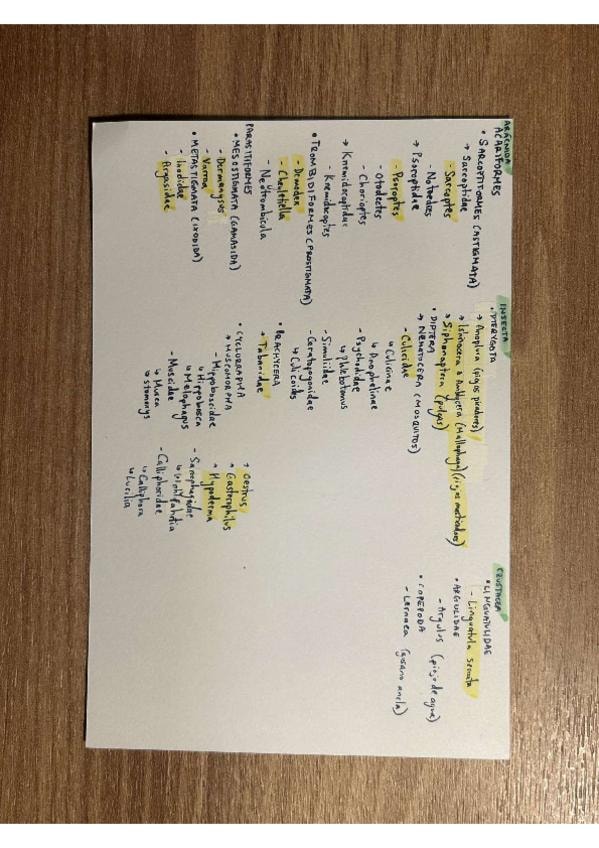 ARÁCNIDA
ACARIFORMES
• SARCOPTIFORMES (ASTIGMATA)
→ Sarcoptidae
- Sarcoptes
- Notoedres
→ Psoroptidae
- Psoroptes
- Otodectes
- Chorioptes
→ Knemidocoptidae
- Knemidocoptes
• TROMBIDIFORMES (PROSTIGMATA)
- Demodex
- Cheyletiella
- Neotrombicula
PARASITIFORMES
• MESOSTIGMATA (GAMASIDA)
- Dermanyssus
- Varroa
• METASTIGMATA (IXODIDA)
- Ixodidae
- Argasidae
INSECTA
• PTERYGOTA
→ Anoplura (piojos picadores)
→ Ishnocera & Amblycera (Mallophaga) (piojos masticadores)
→ Siphonaptera (pulgas)
• DIPTERA
→ NEMATOCERA (MOSQUITOS)
- Culicidae
↳ Culicinae
↳ Anophelinae
- Psychodidae
↳ Phlebotomus
- Simuliidae
- Ceratopogonidae
↳ Culicoides
• BRACHYCERA
→ Tabanidae
• CYCLORRAPHA
→ MUSCOMORPHA
- Hippoboscidae
↳ Hippobosca
↳ Melophagus
- Muscidae
↳ Musca
↳ Stomoxys
→ Oestrus
→ Gastrophilus
→ Hypoderma
- Sarcophagidae
↳ Wohlfahrtia
- Calliphoridae
↳ Calliphora
↳ Lucilia
CRUSTACEA
• LINGUATULIDAE
- Linguatula serrata
• ARGULIDAE
- Argulus (piojo de agua)
• COPEPODA
- Lernaea (gusano ancla)